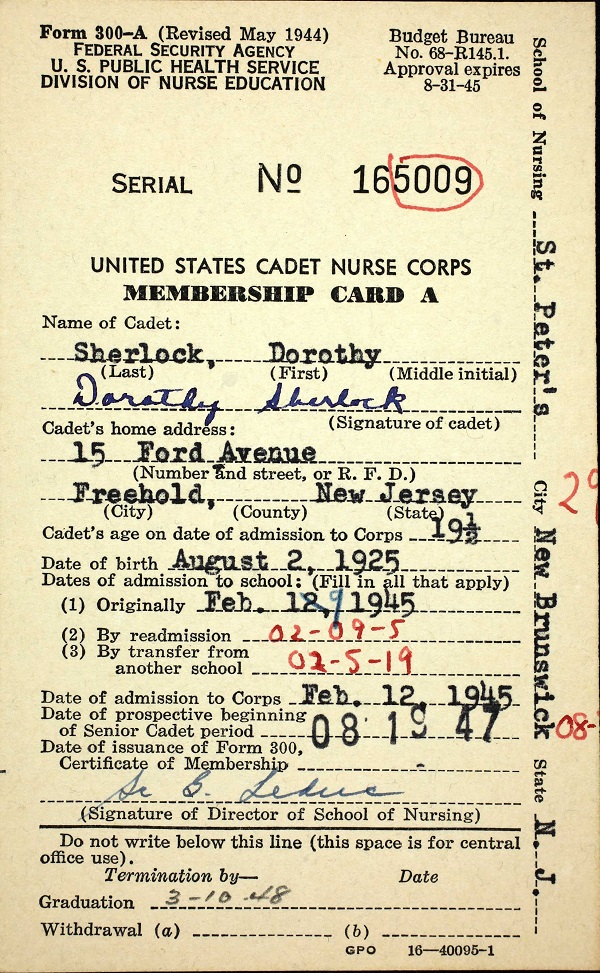 Form 300-A (Revised May 1944)
FEDERAL SECURITY AGENCY
U. S. PUBLIC HEALTH SERVICE
DIVISION OF NURSE EDUCATION
Budget Bureau
No. 68-R145.1.
Approval expires
8-31-45
SERIAL Nº 165009
UNITED STATES CADET NURSE CORPS
MEMBERSHIP CARD A
Name of Cadet:
Sherlock, Dorothy
(Last) (First) (Middle initial)
Dorothy Sherlock
(Signature of cadet)
Cadet's home address:
15 Ford Avenue
(Number and street, or R. F. D.)
Freehold, New Jersey
(City) (County) (State)
Cadet's age on date of admission to Corps 19½
Date of birth August 2, 1925
Dates of admission to school: (Fill in all that apply)
(1) Originally Feb. 12, 9 1945
(2) By readmission 02-09-5
(3) By transfer from
another school 02-5-19
Date of admission to Corps Feb. 12, 1945
Date of prospective beginning
of Senior Cadet period 08 19 47
Date of issuance of Form 300,
Certificate of Membership
Sr B. Leduc
(Signature of Director of School of Nursing)
Do not write below this line (this space is for central
office use).
Termination by— Date
Graduation 3-10-48
Withdrawal (a) (b)
GPO 16—40095-1
School of Nursing St. Peter's City New Brunswick State N. J.
29
08-